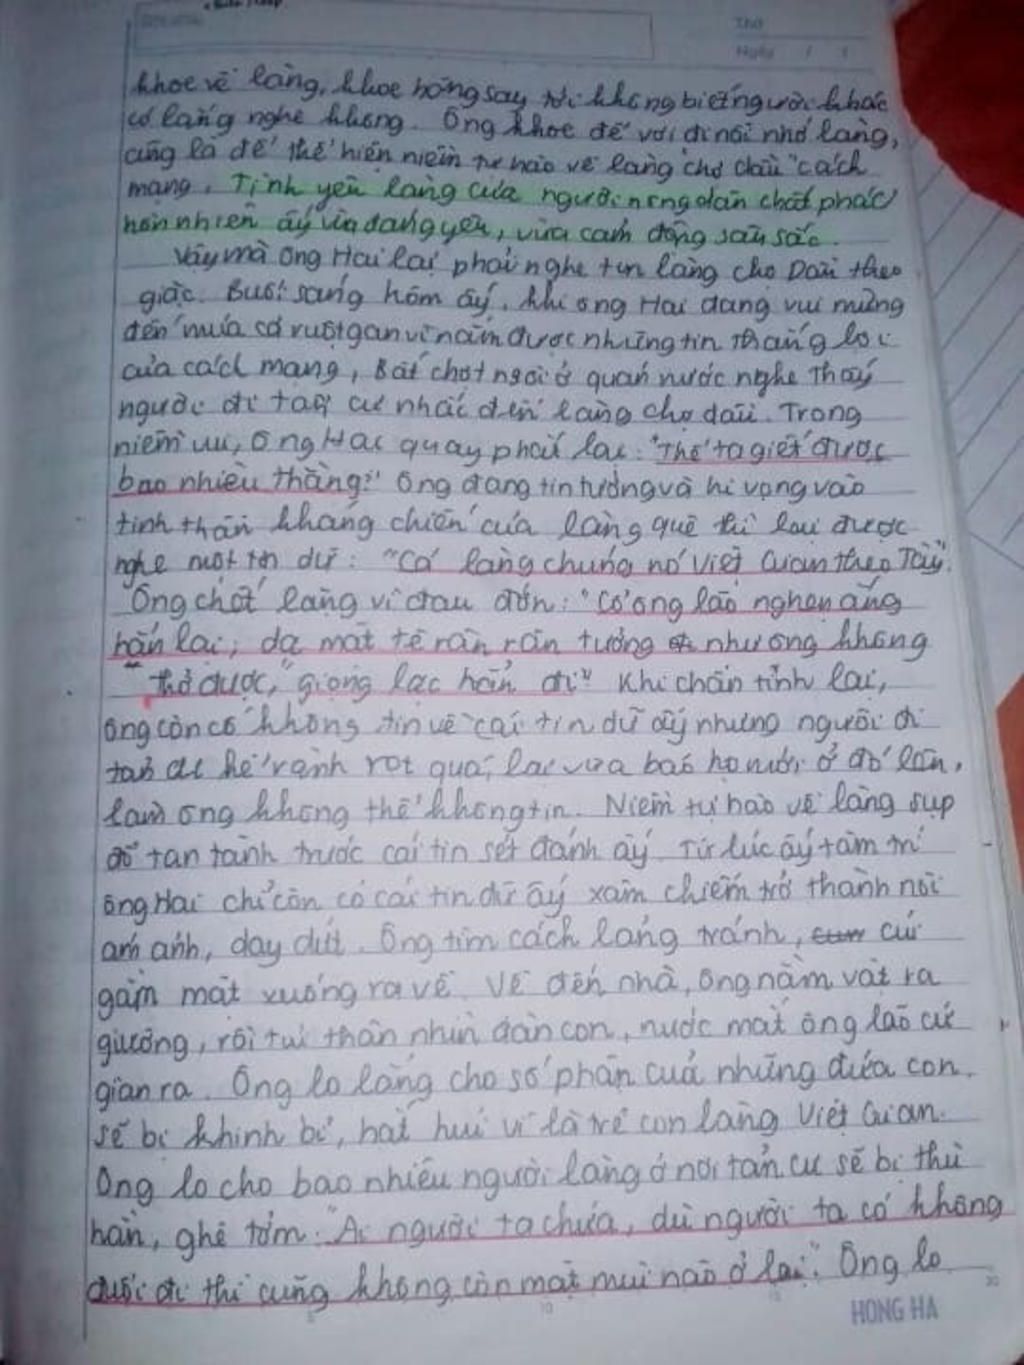 Thứ
Ngày / /
khoe về làng, khoe hăng say tới không biết người khác
có lắng nghe không. Ông khoe để vơi đi nỗi nhớ làng,
cũng là để thể hiện niềm tự hào về làng chợ dầu "cách
mạng. Tình yêu làng của người nông dân chất phác
hồn nhiên ấy vừa đáng yêu, vừa cảm động sâu sắc.
Vậy mà ông Hai lại phải nghe tin làng chợ Dầu theo
giặc. Buổi sáng hôm ấy, khi ông Hai đang vui mừng
đến múa cả ruột gan vì nắm được những tin thắng lợi
của cách mạng, Bất chợt ngồi ở quán nước nghe thấy
người đi tản cư nhắc đến làng chợ dầu. Trong
niềm vui, ông Hai quay phắt lại: "Thế ta giết được
bao nhiêu thằng?" Ông đang tin tưởng và hi vọng vào
tinh thần kháng chiến của làng quê thì lại được
nghe một tin dữ: "Cả làng chúng nó Việt Gian theo Tây"
Ông chết lặng vì đau đớn: "Cổ ông lão nghẹn ắng
hẳn lại; da mặt tê rân rân tưởng như ông không
thở được," giọng lạc hẳn đi" Khi chấn tỉnh lại,
ông còn cố không tin về cái tin dữ ấy nhưng người đi
tản cư kể rành rọt quá, lại vừa bảo họ mới ở đó lên,
làm ông không thể không tin. Niềm tự hào về làng sụp
đổ tan tành trước cái tin sét đánh ấy. Từ lúc ấy tâm trí
ông Hai chỉ còn có cái tin dữ ấy xâm chiếm trở thành nỗi
ám ảnh, day dứt. Ông tìm cách lảng tránh, cứ
gằm mặt xuống ra về. Về đến nhà, ông nằm vật ra
giường, rồi tủi thân nhìn đàn con, nước mắt ông lão cứ
giàn ra. Ông lo lắng cho số phận của những đứa con,
sẽ bị khinh bỉ, hắt hủi vì là trẻ con làng Việt Gian.
Ông lo cho bao nhiêu người làng ở nơi tản cư sẽ bị thù
hằn, ghê tởm. "Ai người ta chứa, dù người ta có không
đuổi đi thì cũng không còn mặt mũi nào ở lại". Ông lo
HONG HA